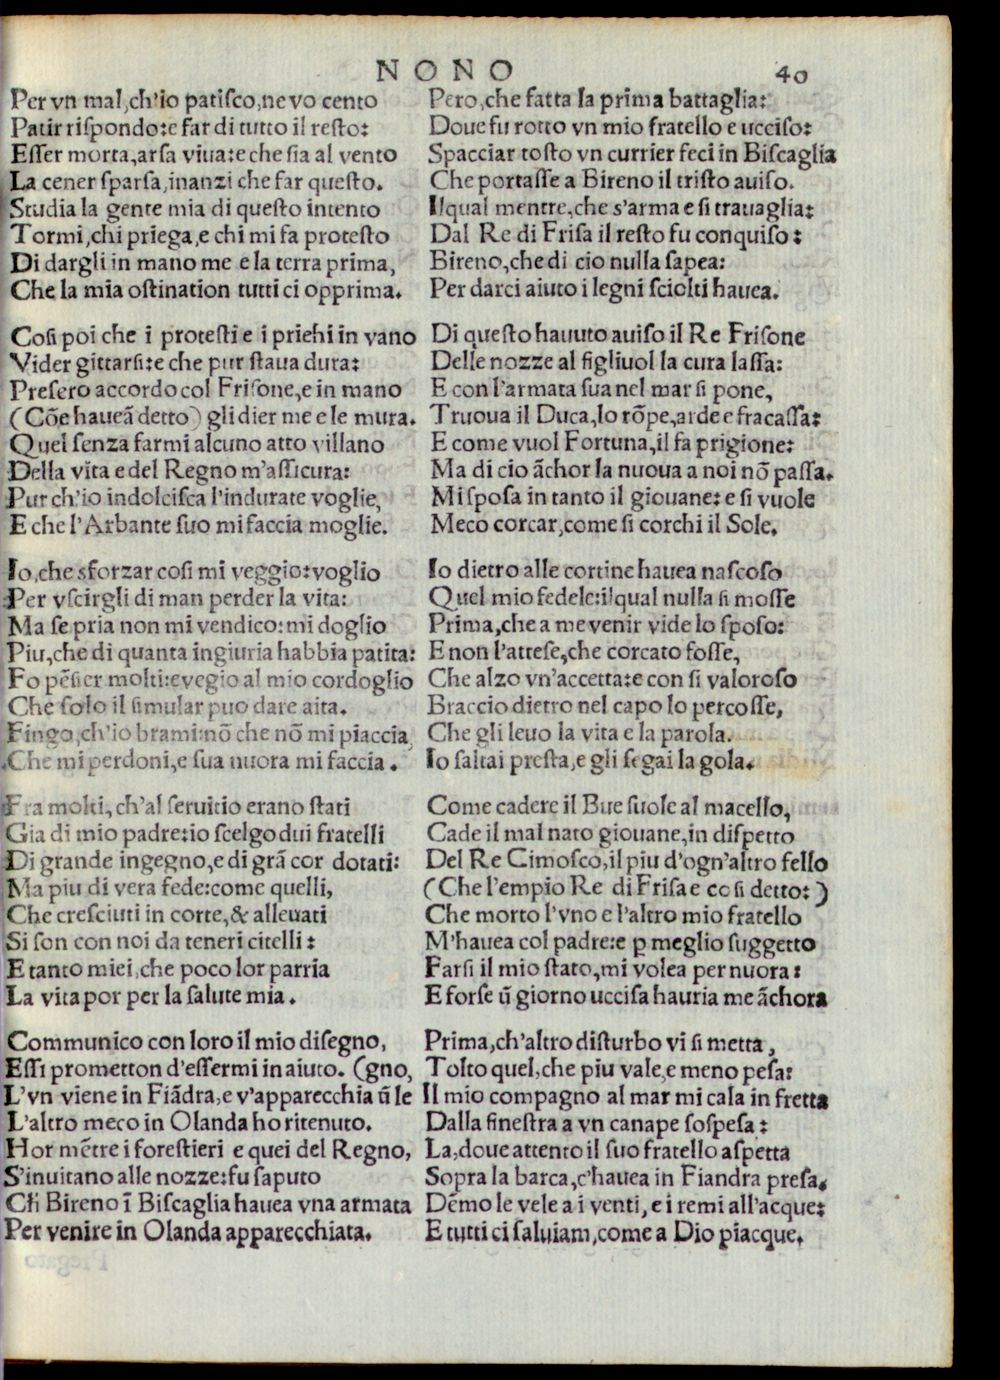 NONO 40
Per vn mal,ch'io patiſco,ne vo cento
Patir riſpondo:e far di tutto il reſto:
Eſſer morta,arſa viua:e che ſia al vento
La cener ſparſa,inanzi che far queſto.
Studia la gente mia di queſto intento
Tormi,chi priega,e chi mi fa proteſto
Di dargli in mano me e la terra prima,
Che la mia oſtination tutti ci opprima.
Coſi poi che i proteſti e i priehi in vano
Vider gittarſi:e che pur ſtaua dura:
Preſero accordo col Friſone,e in mano
(Cōe haueā detto) gli dier me e le mura.
Quel ſenza farmi alcuno atto villano
Della vita e del Regno m'aſſicura:
Pur ch'io indolciſca l'indurate voglie,
E che l'Arbante ſuo mi faccia moglie.
Io,che sforzar coſi mi veggio:voglio
Per vſcirgli di man perder la vita:
Ma ſe pria non mi vendico:mi doglio
Piu,che di quanta ingiuria habbia patita:
Fo pēſier molti:e vegio al mio cordoglio
Che ſolo il ſimular puo dare aita.
Fingo,ch'io brami:nō che nō mi piaccia,
Che mi perdoni,e ſua nuora mi faccia.
Fra molti,ch'al ſeruitio erano ſtati
Gia di mio padre:io ſcelgo dui fratelli
Di grande ingegno,e di grā cor dotati:
Ma piu di vera fede:come quelli,
Che creſciuti in corte,& alleuati
Si ſon con noi da teneri citelli:
E tanto miei,che poco lor parria
La vita por per la ſalute mia.
Communico con loro il mio diſegno,
Eſſi prometton d'eſſermi in aiuto. (gno,
L'vn viene in Fiādra,e v'apparecchia ū le
L'altro meco in Olanda ho ritenuto.
Hor mētre i foreſtieri e quei del Regno,
S'inuitano alle nozze:fu ſaputo
Ch̄ Bireno ī Biſcaglia hauea vna armata
Per venire in Olanda apparecchiata.
Pero,che fatta la prima battaglia:
Doue fu rotto vn mio fratello e vcciſo:
Spacciar toſto vn currier feci in Biſcaglia
Che portaſſe a Bireno il triſto auiſo.
Ilqual mentre,che s'arma e ſi trauaglia:
Dal Re di Friſa il reſto fu conquiſo:
Bireno,che di cio nulla ſapea:
Per darci aiuto i legni ſciolti hauea.
Di queſto hauuto auiſo il Re Friſone
Delle nozze al figliuol la cura laſſa:
E con l'armata ſua nel mar ſi pone,
Truoua il Duca,lo rōpe,arde e fracaſſa:
E come vuol Fortuna,il fa prigione:
Ma di cio āchor la nuoua a noi nō paſſa.
Mi ſpoſa in tanto il giouane:e ſi vuole
Meco corcar,come ſi corchi il Sole.
Io dietro alle cortine hauea naſcoſo
Quel mio fedele:ilqual nulla ſi moſſe
Prima,che a me venir vide lo ſpoſo:
E non l'atteſe,che corcato foſſe,
Che alzo vn'accetta:e con ſi valoroſo
Braccio dietro nel capo lo percoſſe,
Che gli leuo la vita e la parola.
Io ſaltai preſta,e gli ſegai la gola.
Come cadere il Bue ſuole al macello,
Cade il mal nato giouane,in diſpetto
Del Re Cimoſco,il piu d'ogn'altro fello
(Che l'empio Re di Friſa e coſi detto:)
Che morto l'vno e l'altro mio fratello
M'hauea col padre:e ꝑ meglio ſuggetto
Farſi il mio ſtato,mi volea per nuora:
E forſe ū giorno vcciſa hauria me āchora
Prima,ch'altro diſturbo vi ſi metta,
Tolto quel,che piu vale,e meno peſa:
Il mio compagno al mar mi cala in fretta
Dalla fineſtra a vn canape ſoſpeſa:
La,doue attento il ſuo fratello aſpetta
Sopra la barca,c'hauea in Fiandra preſa.
Dēmo le vele a i venti,e i remi all'acque:
E tutti ci ſaluiam,come a Dio piacque.